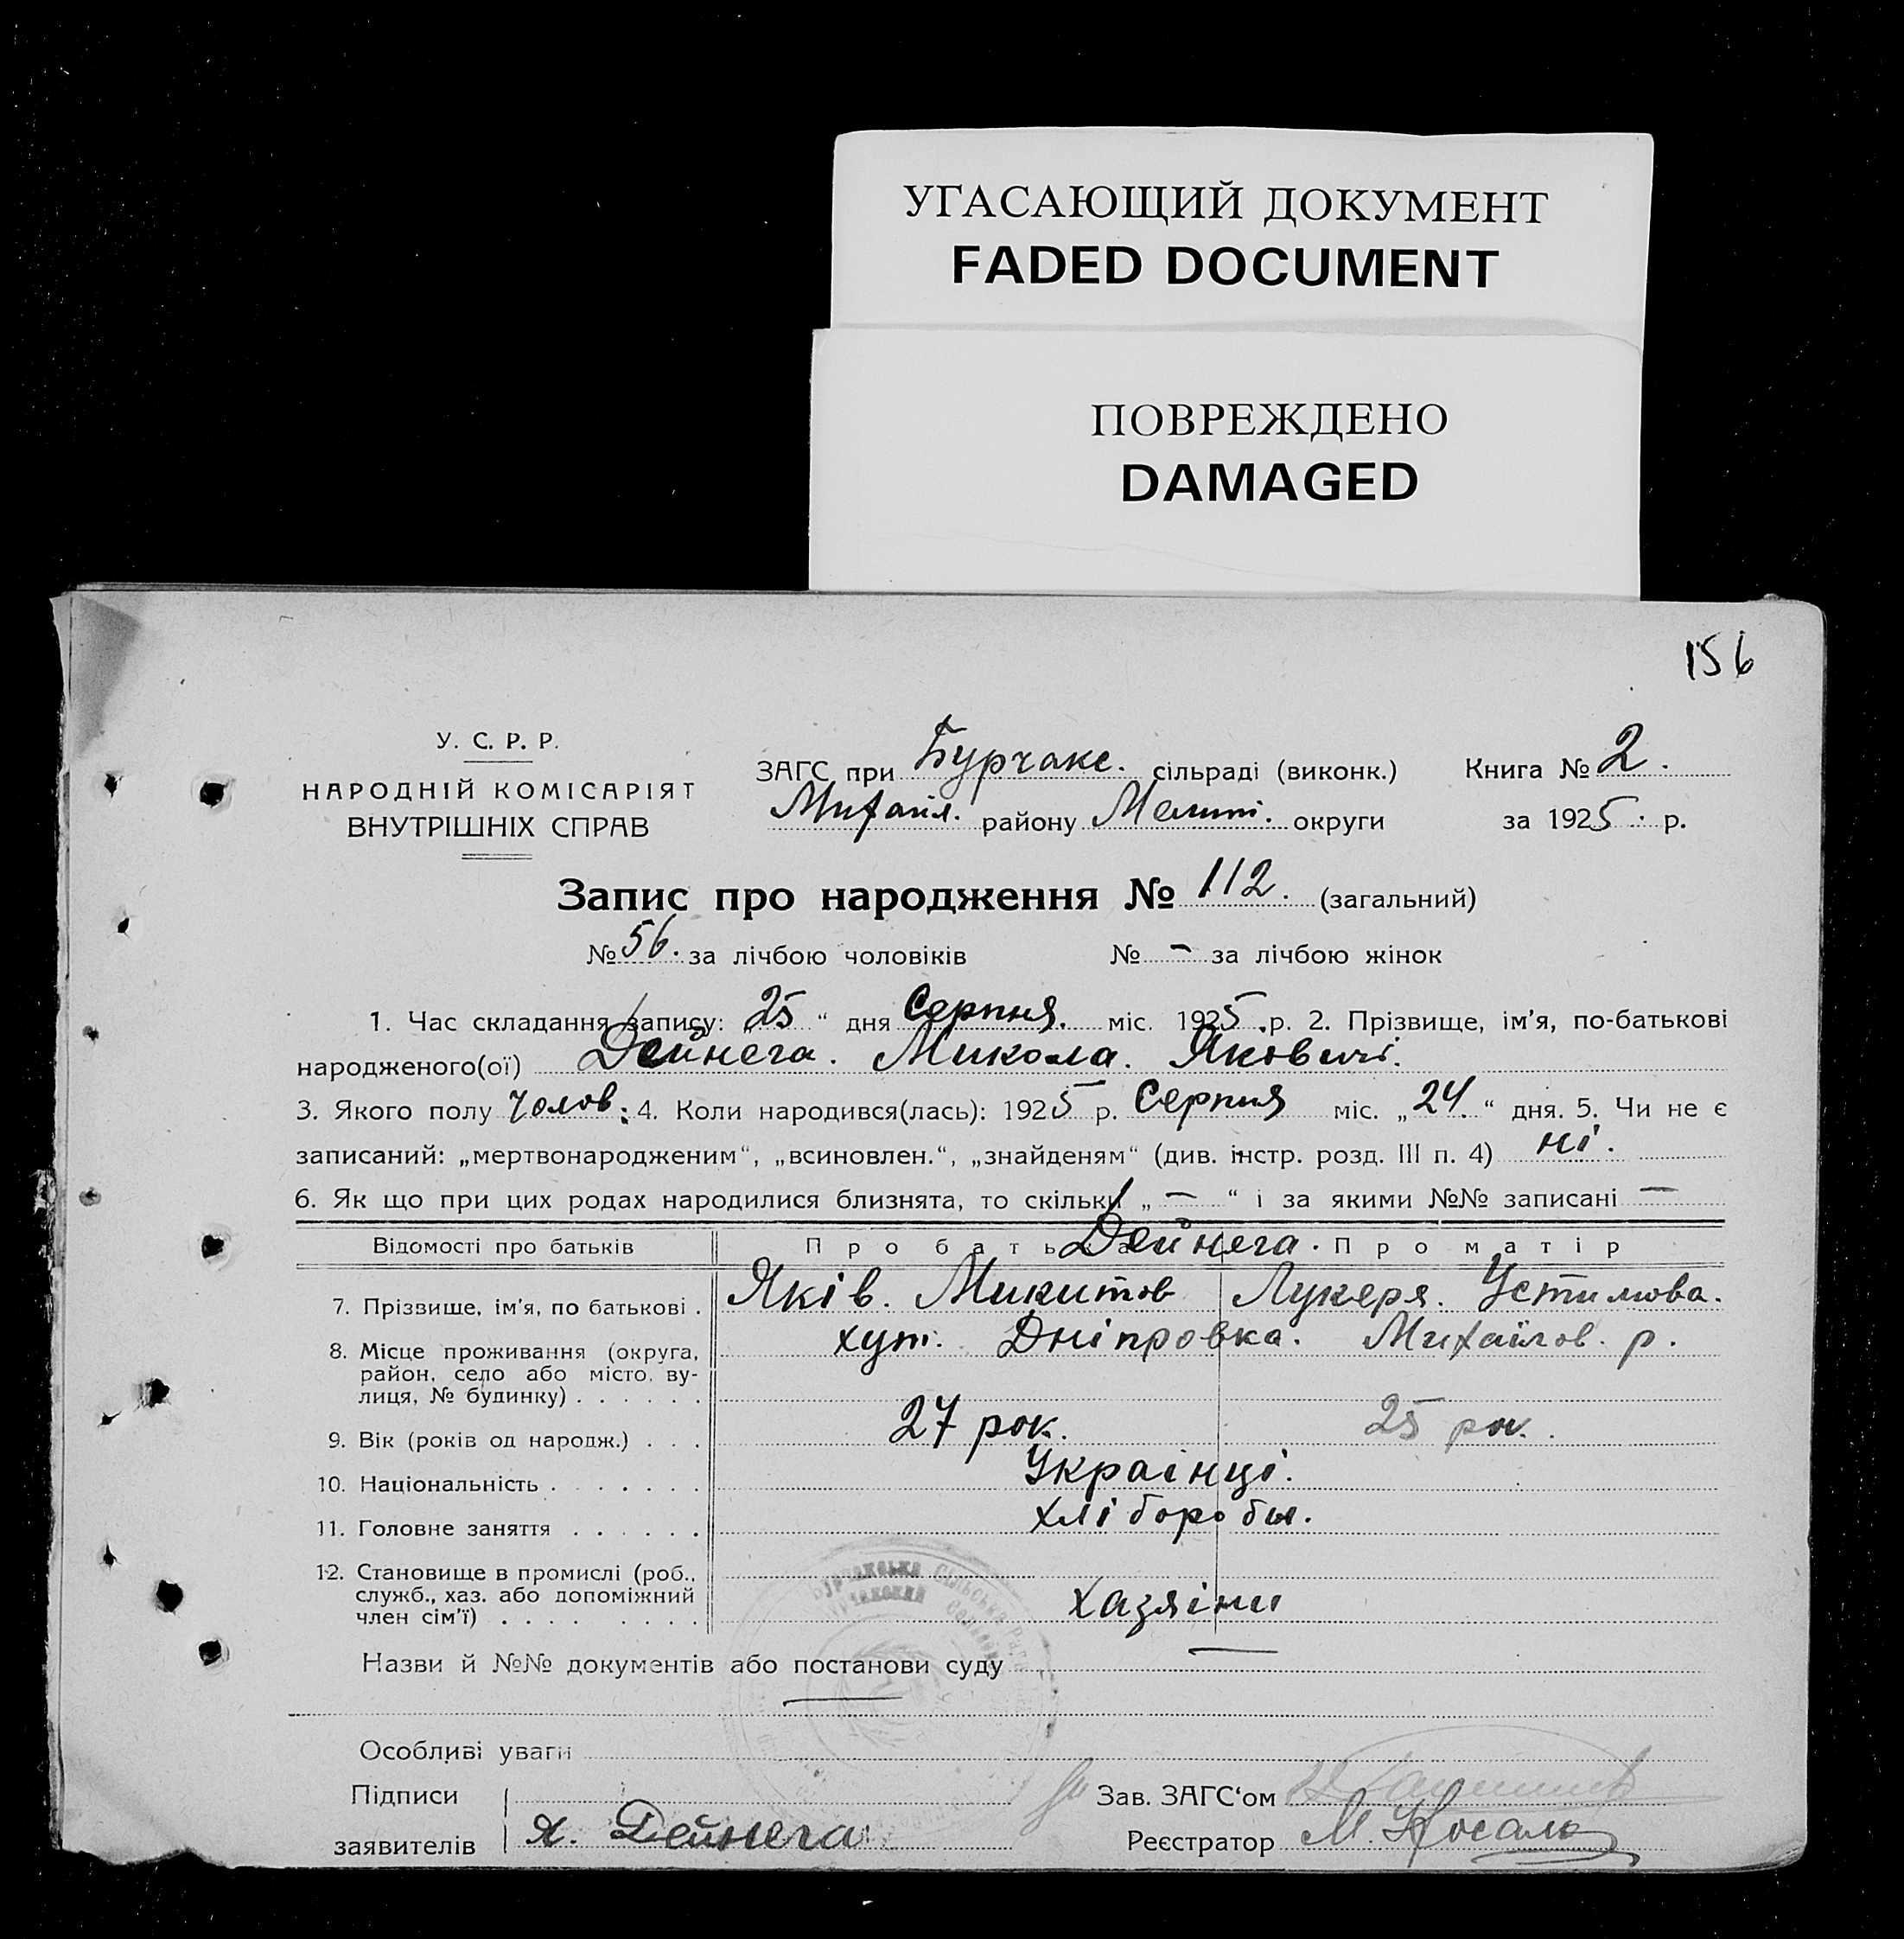 УГАСАЮЩИЙ ДОКУМЕНТ
FADED DOCUMENT
ПОВРЕЖДЕНО
DAMAGED
156
У. С. Р. Р.
НАРОДНІЙ КОМІСАРІЯТ
ВНУТРІШНІХ СПРАВ
ЗАГС при Бурчакс. сільраді (виконк.) Книга № 2.
Михайл. району Мелит. округи за 1925. р.
Запис про народження № 112. (загальний)
№ 56. за лічбою чоловіків № — за лічбою жінок
1. Час складання запису: „25“ дня Серпня. міс. 1925 р. 2. Прізвище, ім’я, по-батькові
народженого(ої) Дейнега. Микола. Якович.
3. Якого полу Чолов. 4. Коли народився(лась): 1925 р. Серпня міс. „24.“ дня. 5. Чи не є
записаний: „мертвонародженим“, „всиновлен.“, „знайденям“ (див. інстр. розд. III п. 4) ні.
6. Як що при цих родах народилися близнята, то скільки „—“ і за якими №№ записані —
Відомості про батьків Про батька Про матір
Дейнега.
7. Прізвище, ім’я, по батькові . Яків. Микитов Лукеря. Устимова.
8. Місце проживання (округа, хут. Дніпровка. Михайлов. р.
район, село або місто, ву-
лиця, № будинку) . . . . . .
9. Вік (років од народж.) . . . 27 рок. 25 рок.
10. Національність . . . . . . . Українці.
11. Головне заняття . . . . . . хлібороби.
12. Становище в промислі (роб.,
служб., хаз. або допоміжний Хазяіни
член сім’ї) . . . . . . . .
Назви й №№ документів або постанови суду —
—
Особливі уваги
Підписи Зав. ЗАГС‘ом
заявителів Я. Дейнега Реєстратор М.